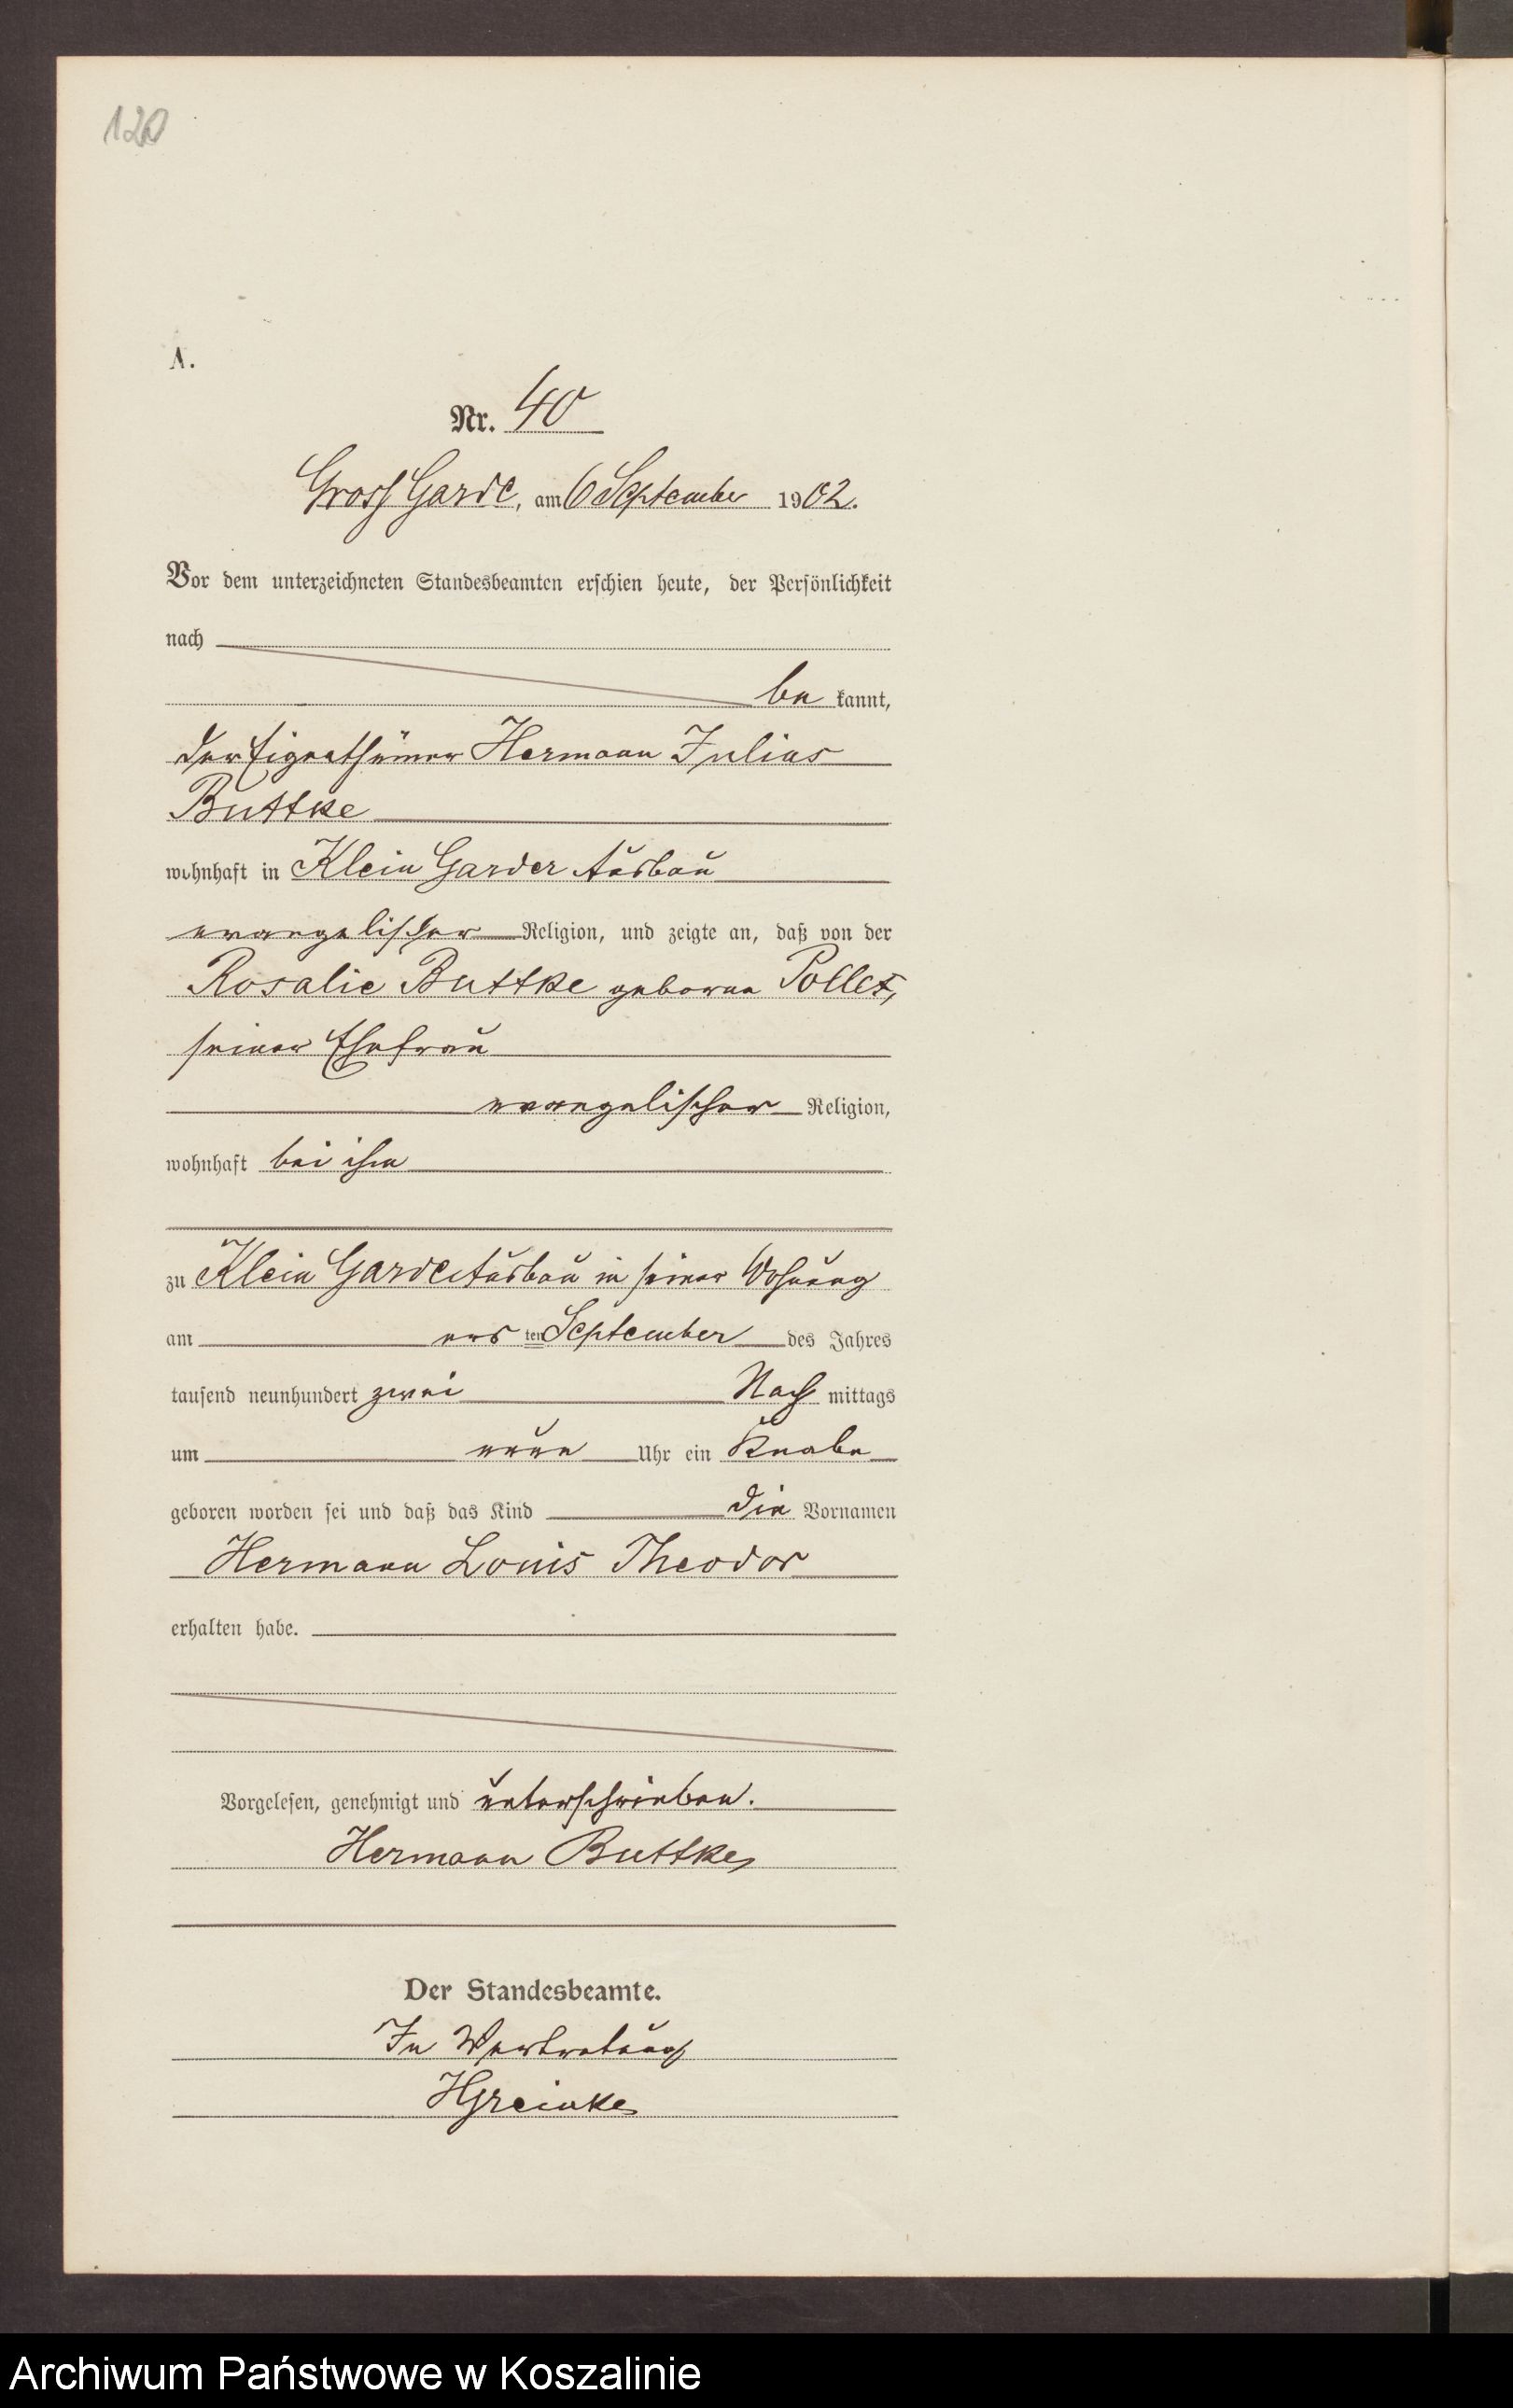 120
A.
Nr. 40
Gross Garde, am 6 September 1902.
Vor dem unterzeichneten Standesbeamten erschien heute, der Persönlichkeit
nach
be kannt,
der Eigenthümer Hermann Julius
Buttke
wohnhaft in Klein Garder Ausbau
evangelischer Religion, und zeigte an, daß von der
Rosalie Buttke geborne Pollex,
seiner Ehefrau
evangelischer Religion,
wohnhaft bei ihm
zu Klein Garde Ausbau in seiner Wohnung
am ers ten September des Jahres
tausend neunhundert zwei Nach mittags
um neun Uhr ein Knabe
geboren worden sei und daß das Kind die Vornamen
Hermann Louis Theodor
erhalten habe.
Vorgelesen, genehmigt und unterschrieben.
Hermann Buttke
Der Standesbeamte.
In Vertretung
HGreinke
Archiwum Państwowe w Koszalinie